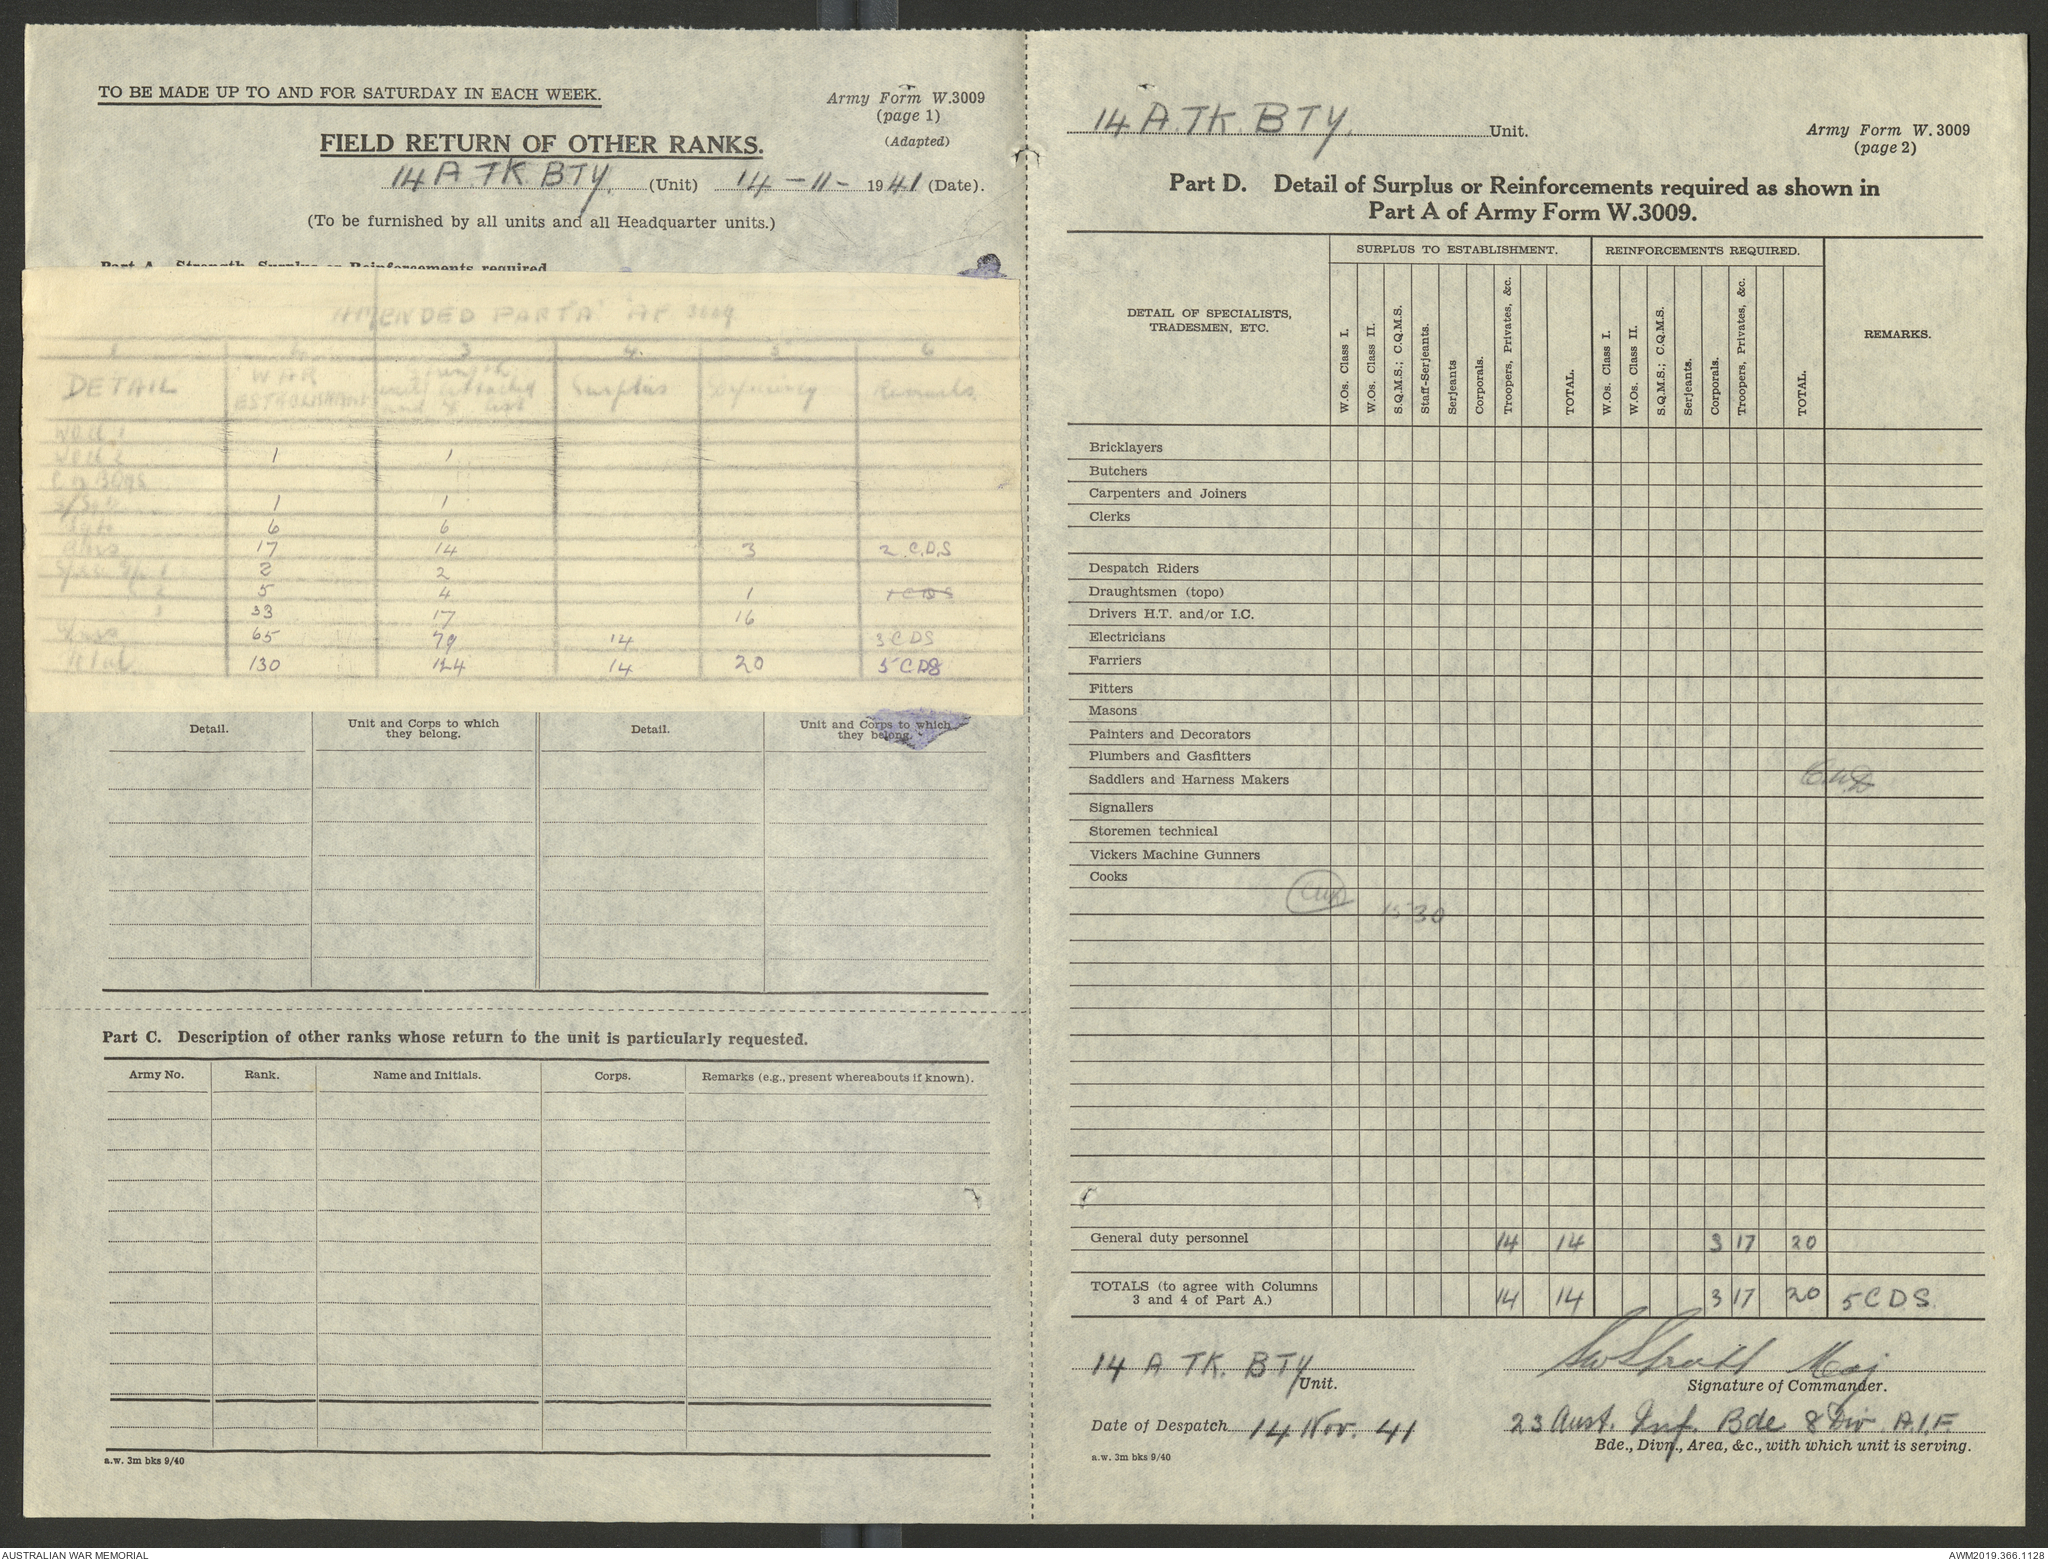 TO BE MADE UP TO AND FOR SATURDAY IN EACH WEEK.
Army Form W.3009
(page 1)
(Adapted)
FIELD RETURN OF OTHER RANKS.
14 A.TK. BTY. (Unit) 14-11-1941 (Date).
(To be furnished by all units and all Headquarter units.)
Part A. Strength, Surplus or Reinforcements required
AMENDED PART A AF 3009
1 2 3 4 5 6
DETAIL WAR ESTABLISHMENT Surplus Deficiency Remarks
1 1
1 1
6 6
17 14 3 2 C.D.S
2 2
2 5 4 1 1 CDS
3 33 17 16
65 79 14 3 CDS
Total 130 124 14 20 5 CDS
Detail. Unit and Corps to which they belong. Detail. Unit and Corps to which they belong.
Part C. Description of other ranks whose return to the unit is particularly requested.
Army No. Rank. Name and Initials. Corps. Remarks (e.g., present whereabouts if known).
a.w. 3m bks 9/40
14 A.TK. BTY. Unit.
Army Form W. 3009
(page 2)
Part D. Detail of Surplus or Reinforcements required as shown in
Part A of Army Form W.3009.
DETAIL OF SPECIALISTS, TRADESMEN, ETC.
SURPLUS TO ESTABLISHMENT.
REINFORCEMENTS REQUIRED.
REMARKS.
W.Os. Class I.
W.Os. Class II.
S.Q.M.S.; C.Q.M.S.
Staff-Serjeants.
Serjeants
Corporals.
Troopers, Privates, &c.
TOTAL.
W.Os. Class I.
W.Os. Class II.
S.Q.M.S.; C.Q.M.S.
Serjeants.
Corporals.
Troopers, Privates, &c.
TOTAL.
Bricklayers
Butchers
Carpenters and Joiners
Clerks
Despatch Riders
Draughtsmen (topo)
Drivers H.T. and/or I.C.
Electricians
Farriers
Fitters
Masons
Painters and Decorators
Plumbers and Gasfitters
Saddlers and Harness Makers
Signallers
Storemen technical
Vickers Machine Gunners
Cooks
1530
General duty personnel 14 14 3 17 20
TOTALS (to agree with Columns
3 and 4 of Part A.) 14 14 3 17 20 5 C D S.
14 A TK. BTY Unit.
Maj
Signature of Commander.
Date of Despatch 14 Nov. 41
23 Aust. Inf. Bde 8 Div. A.I.F.
Bde., Divn., Area, &c., with which unit is serving.
a.w. 3m bks 9/40
AUSTRALIAN WAR MEMORIAL
AWM2019.366.1128